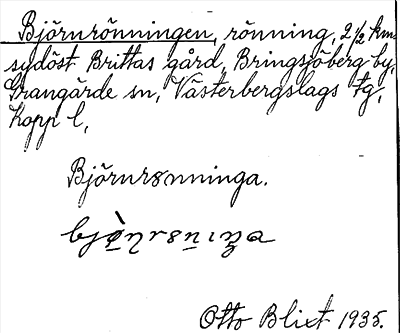 Björnrönningen, rönning, 2 1/2 km
sydöst Brittas gård, Bringsjöberg by,
Grangärde sn, Västerbergslags tg,
Kopp l,
Björnrönninga.
Otto Blixt 1935.